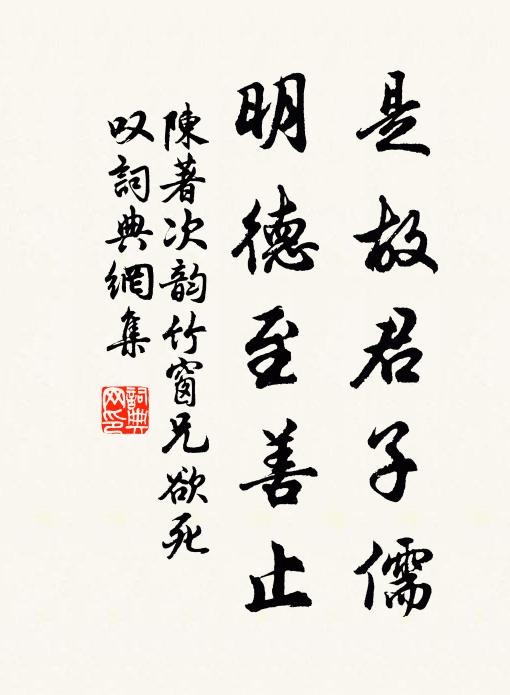 是故君子儒
明德至善止
陳著次韵竹窗兄欲死
叹詞典網集
詞典网印